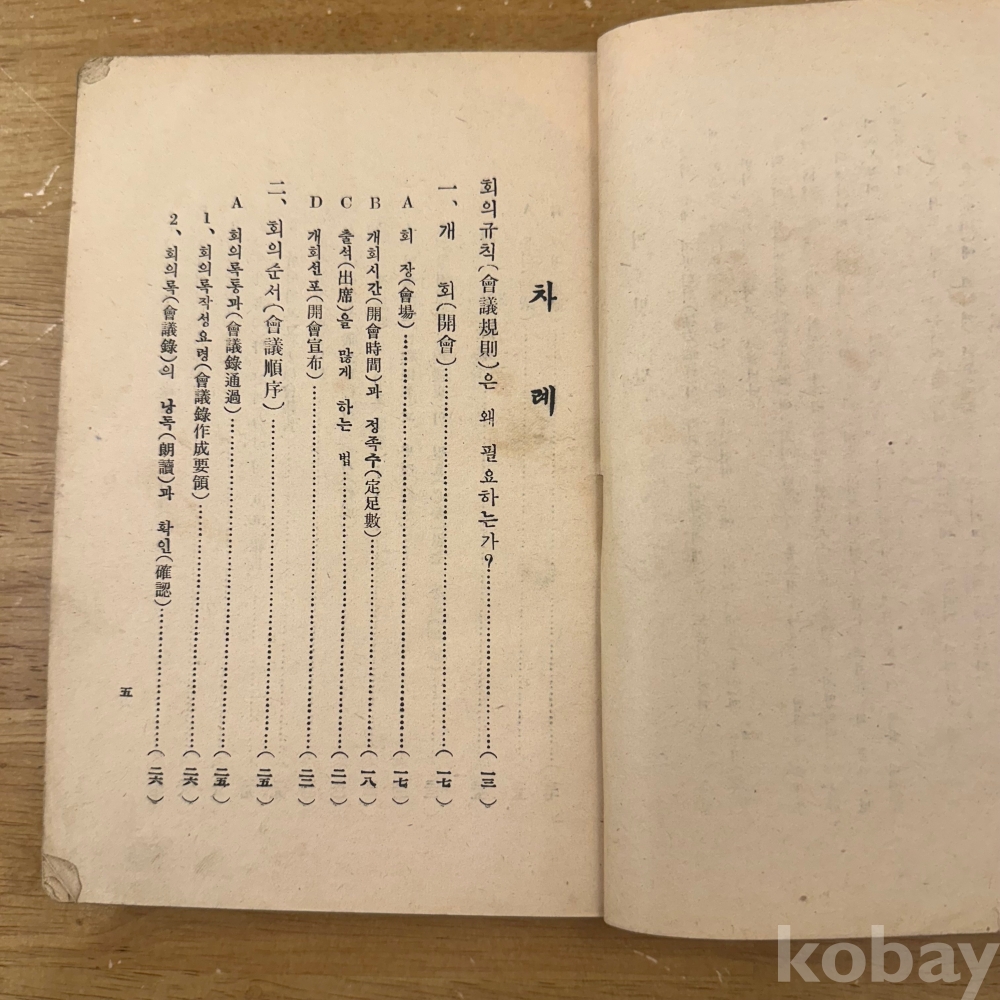 차례
회의규칙(會議規則)은 왜 필요하는가?……(一三)
一、개 회(開會)……(一七)
A 회 장(會場)……(一七)
B 개회시간(開會時間)과 정족수(定足數)……(一八)
C 출석(出席)을 많게 하는 법……(二一)
D 개회선포(開會宣布)……(二三)
二、회의순서(會議順序)……(二五)
A 회의록통과(會議錄通過)……(二五)
1、회의록작성요령(會議錄作成要領)……(二六)
2、회의록(會議錄)의 낭독(朗讀)과 확인(確認)……(二六)
五
kobay